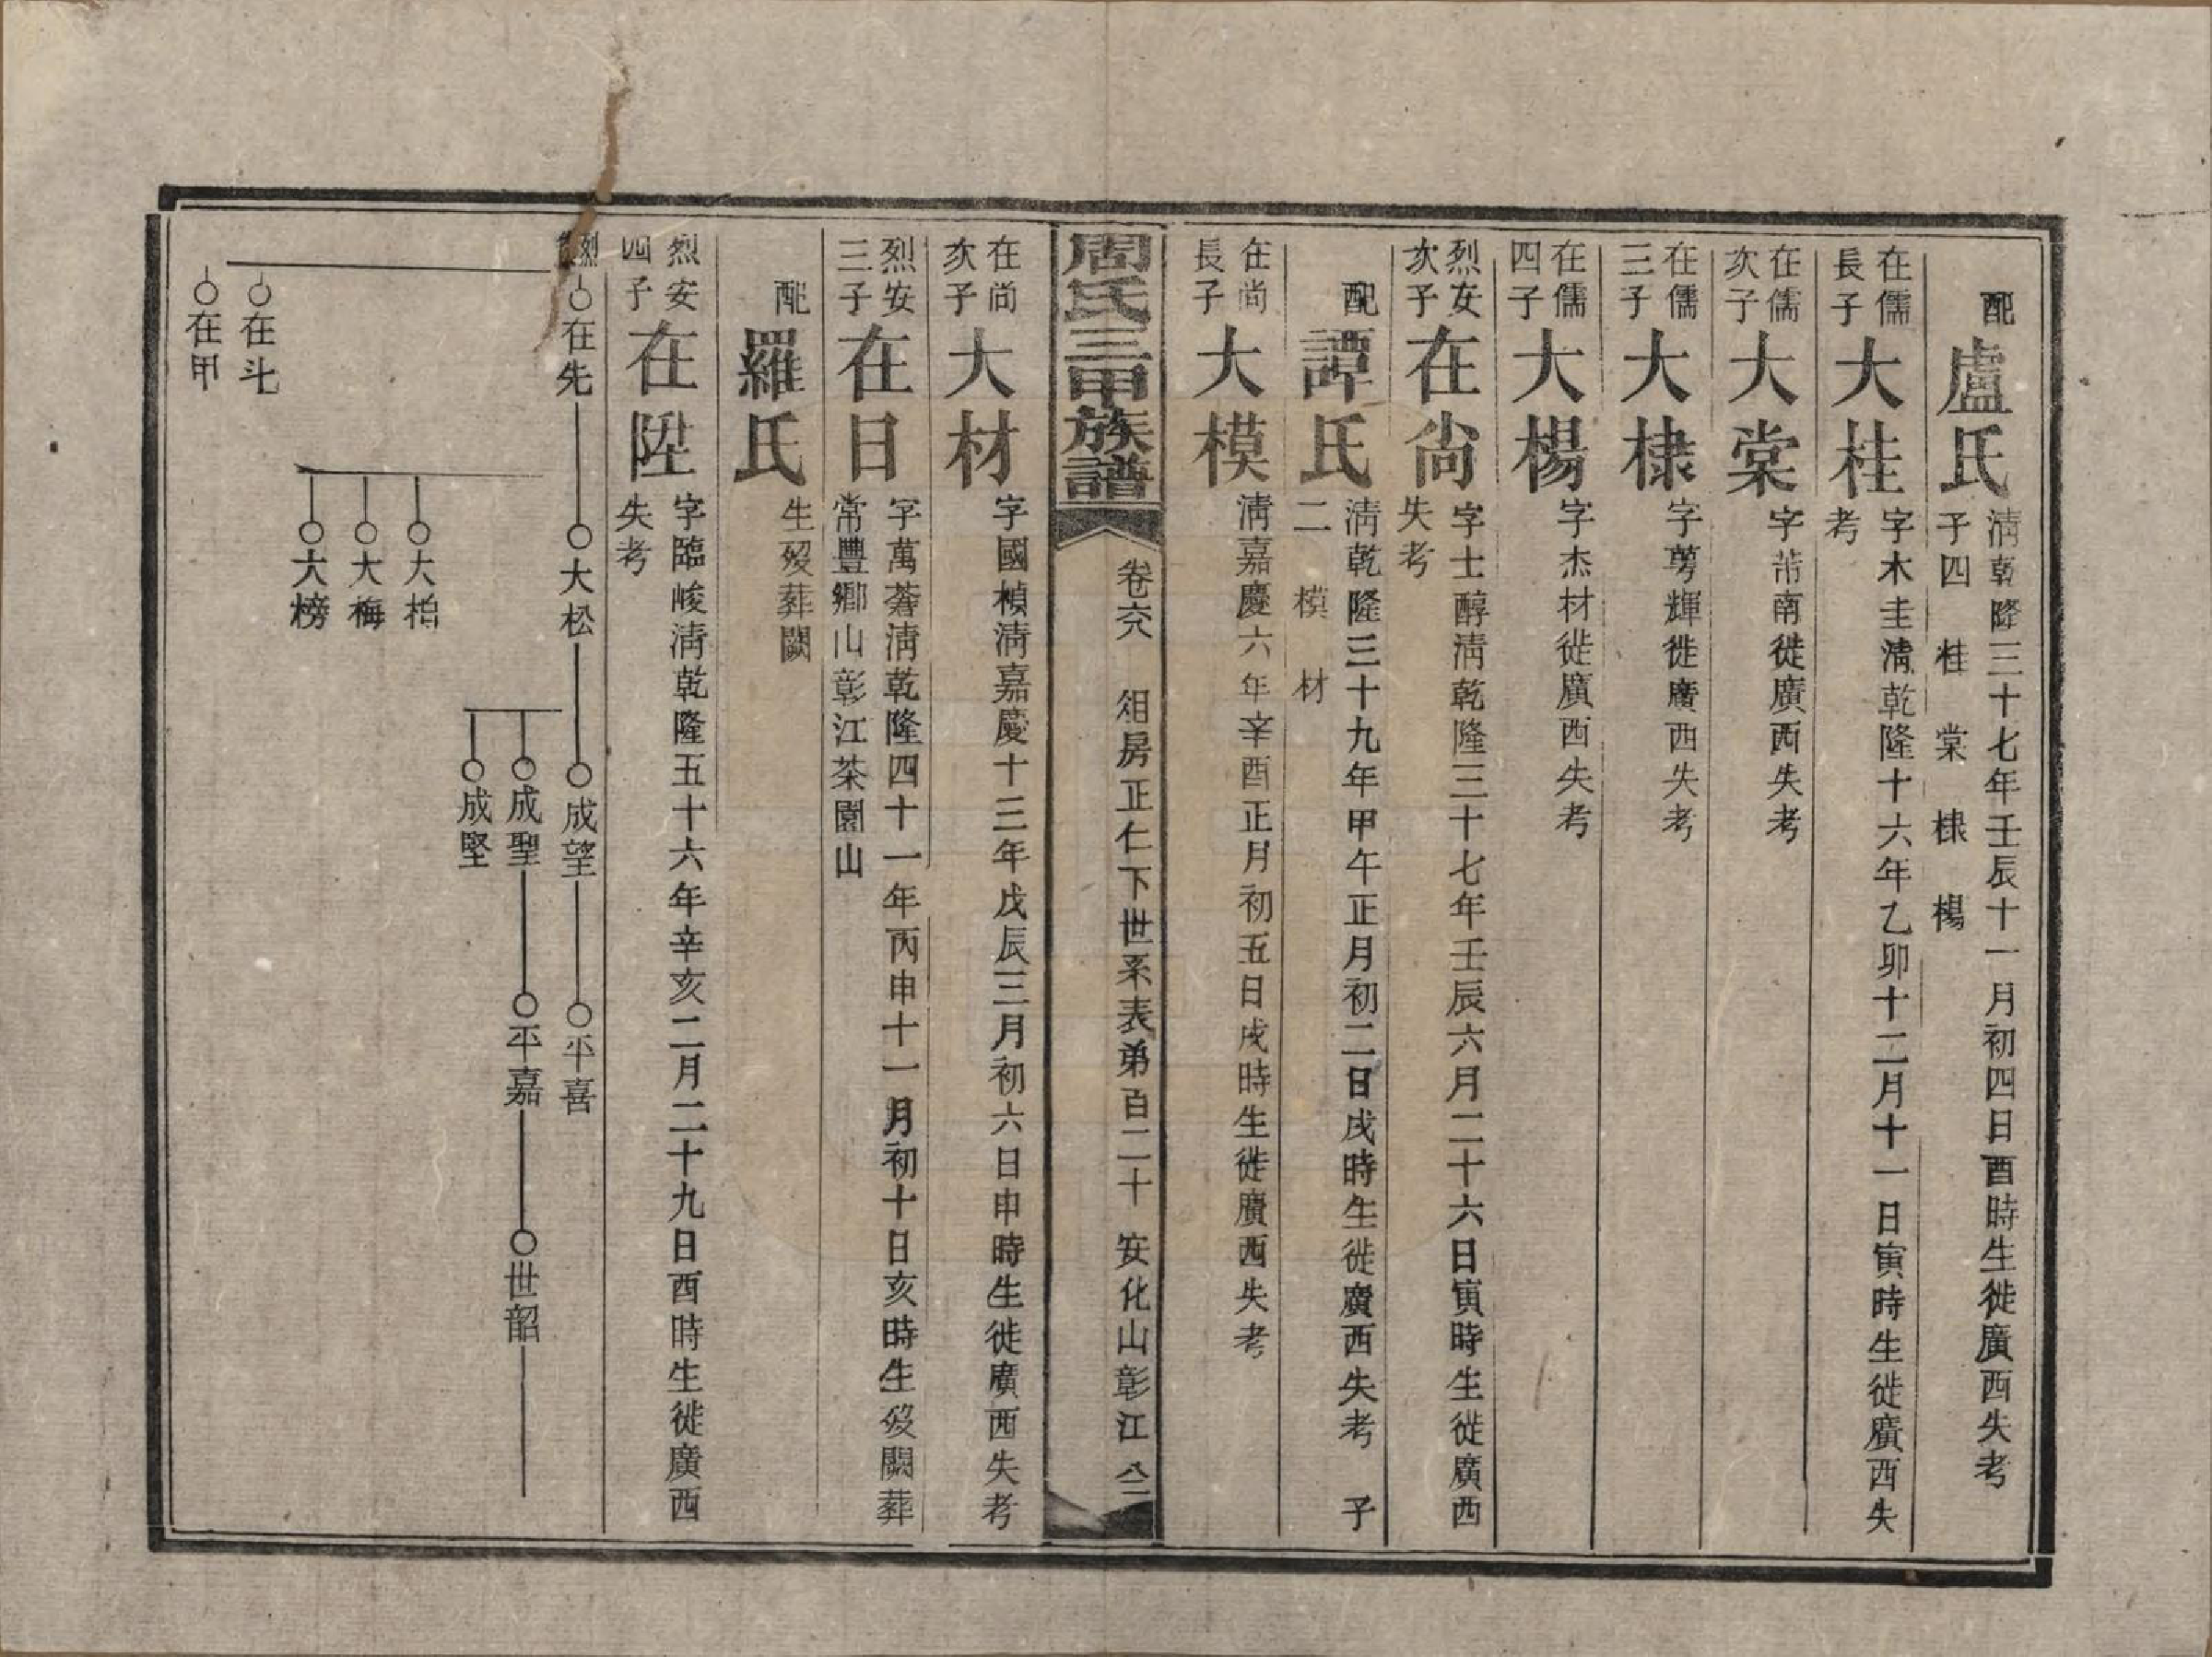 配盧氏清乾隆三十七年壬辰十一月初四日酉時生徙廣西失考
子四 桂 棠 棣 楊
在儒長子大桂字木圭清乾隆十六年乙卯十二月十一日寅時生徙廣西失
考
在儒次子大棠字芾南徙廣西失考
在儒三子大棣字萼輝徙廣西失考
在儒四子大楊字杰材徙廣西失考
烈安次子在尚字士醇清乾隆三十七年壬辰六月二十六日寅時生徙廣西
失考
配譚氏清乾隆三十九年甲午正月初二日戌時生徙廣西失考 子
二 模 材
在尚長子大模清嘉慶六年辛酉正月初五日戌時生徙廣西失考
周氏三甲族譜 卷六八 俎房正仁下世系表弟百二十 安化山彰江 八二
在尚次子大材字國楨清嘉慶十三年戊辰三月初六日申時生徙廣西失考
烈安三子在日字萬蒼清乾隆四十一年丙申十一月初十日亥時生歿闕葬
常豐鄉山彰江茶園山
配羅氏生歿葬闕
烈安四子在陞字臨峻清乾隆五十六年辛亥二月二十九日酉時生徙廣西
失考
在先 大松 成望 平喜
成聖 平嘉 世韶
成堅
大柏
大梅
大榜
在斗
在甲